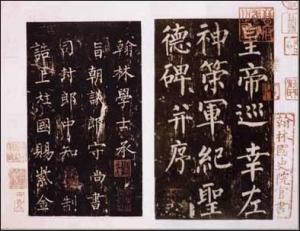 皇帝巡幸左
神策軍紀聖
德碑并序
翰林學士承
旨朝議郎守尚書
司封郎中知制
誥上柱國賜紫金
翰林國史院官書